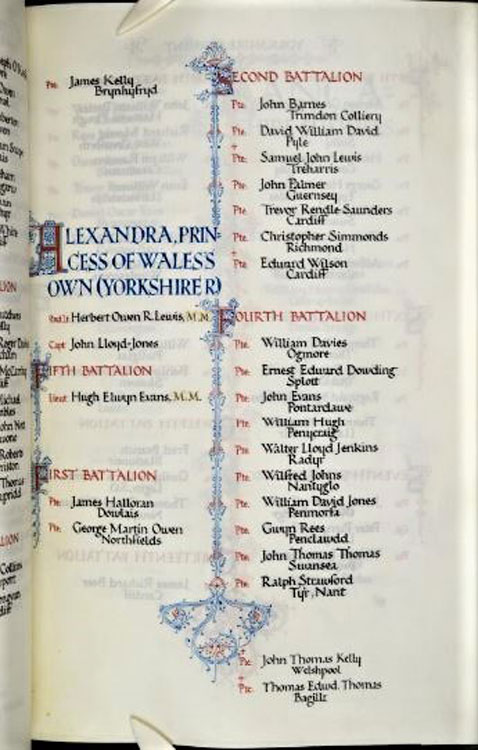 Pte. James Kelly
Brynhyfryd
ALEXANDRA, PRIN-
CESS OF WALES'S
OWN (YORKSHIRE R)
Herbert Owen R. Lewis, M.M.
Capt John Lloyd-Jones
FIFTH BATTALION
Lieut Hugh Elwyn Evans, M.M.
FIRST BATTALION
Pte. James Halloran
Dowlais
Pte. George Martin Owen
Northfields
SECOND BATTALION
Pte. John Barnes
Trimdon Colliery
Pte. David William David
Pyle
Pte. Samuel John Lewis
Treharris
Pte. John Palmer
Guernsey
Pte. Trevor Rendle Saunders
Cardiff
Pte. Christopher Simmonds
Richmond
Pte. Edward Wilson
Cardiff
FOURTH BATTALION
Pte. William Davies
Ogmore
Pte. Ernest Edward Dowding
Splott
Pte. John Evans
Pontardawe
Pte. William Hugh
Penycraig
Pte. Walter Lloyd Jenkins
Radyr
Pte. Wilfred Johns
Nantyglo
Pte. William David Jones
Penmorfa
Pte. Gwyn Rees
Penclawdd
Pte. John Thomas Thomas
Swansea
Pte. Ralph Strawford
Tyr, Nant
Pte. John Thomas Kelly
Welshpool
Pte. Thomas Edwd. Thomas
Bagillt